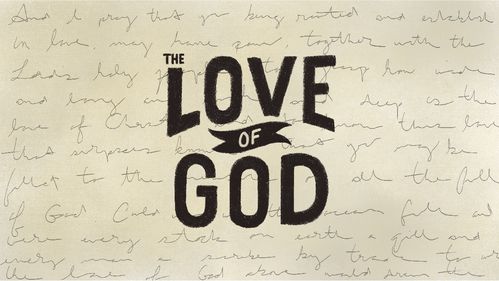 THE
LOVE
OF
GOD
And I pray that you being rooted and established
in love, may have power, together with the
Lords holy grasp how wide
and long deep is the
love of Christ this love
that surpasses that you may be
filled to the all the full
of God Could ocean fill and
Were every stock on earth a quill and
every man a scribe by trade To
the love of God above would drain the